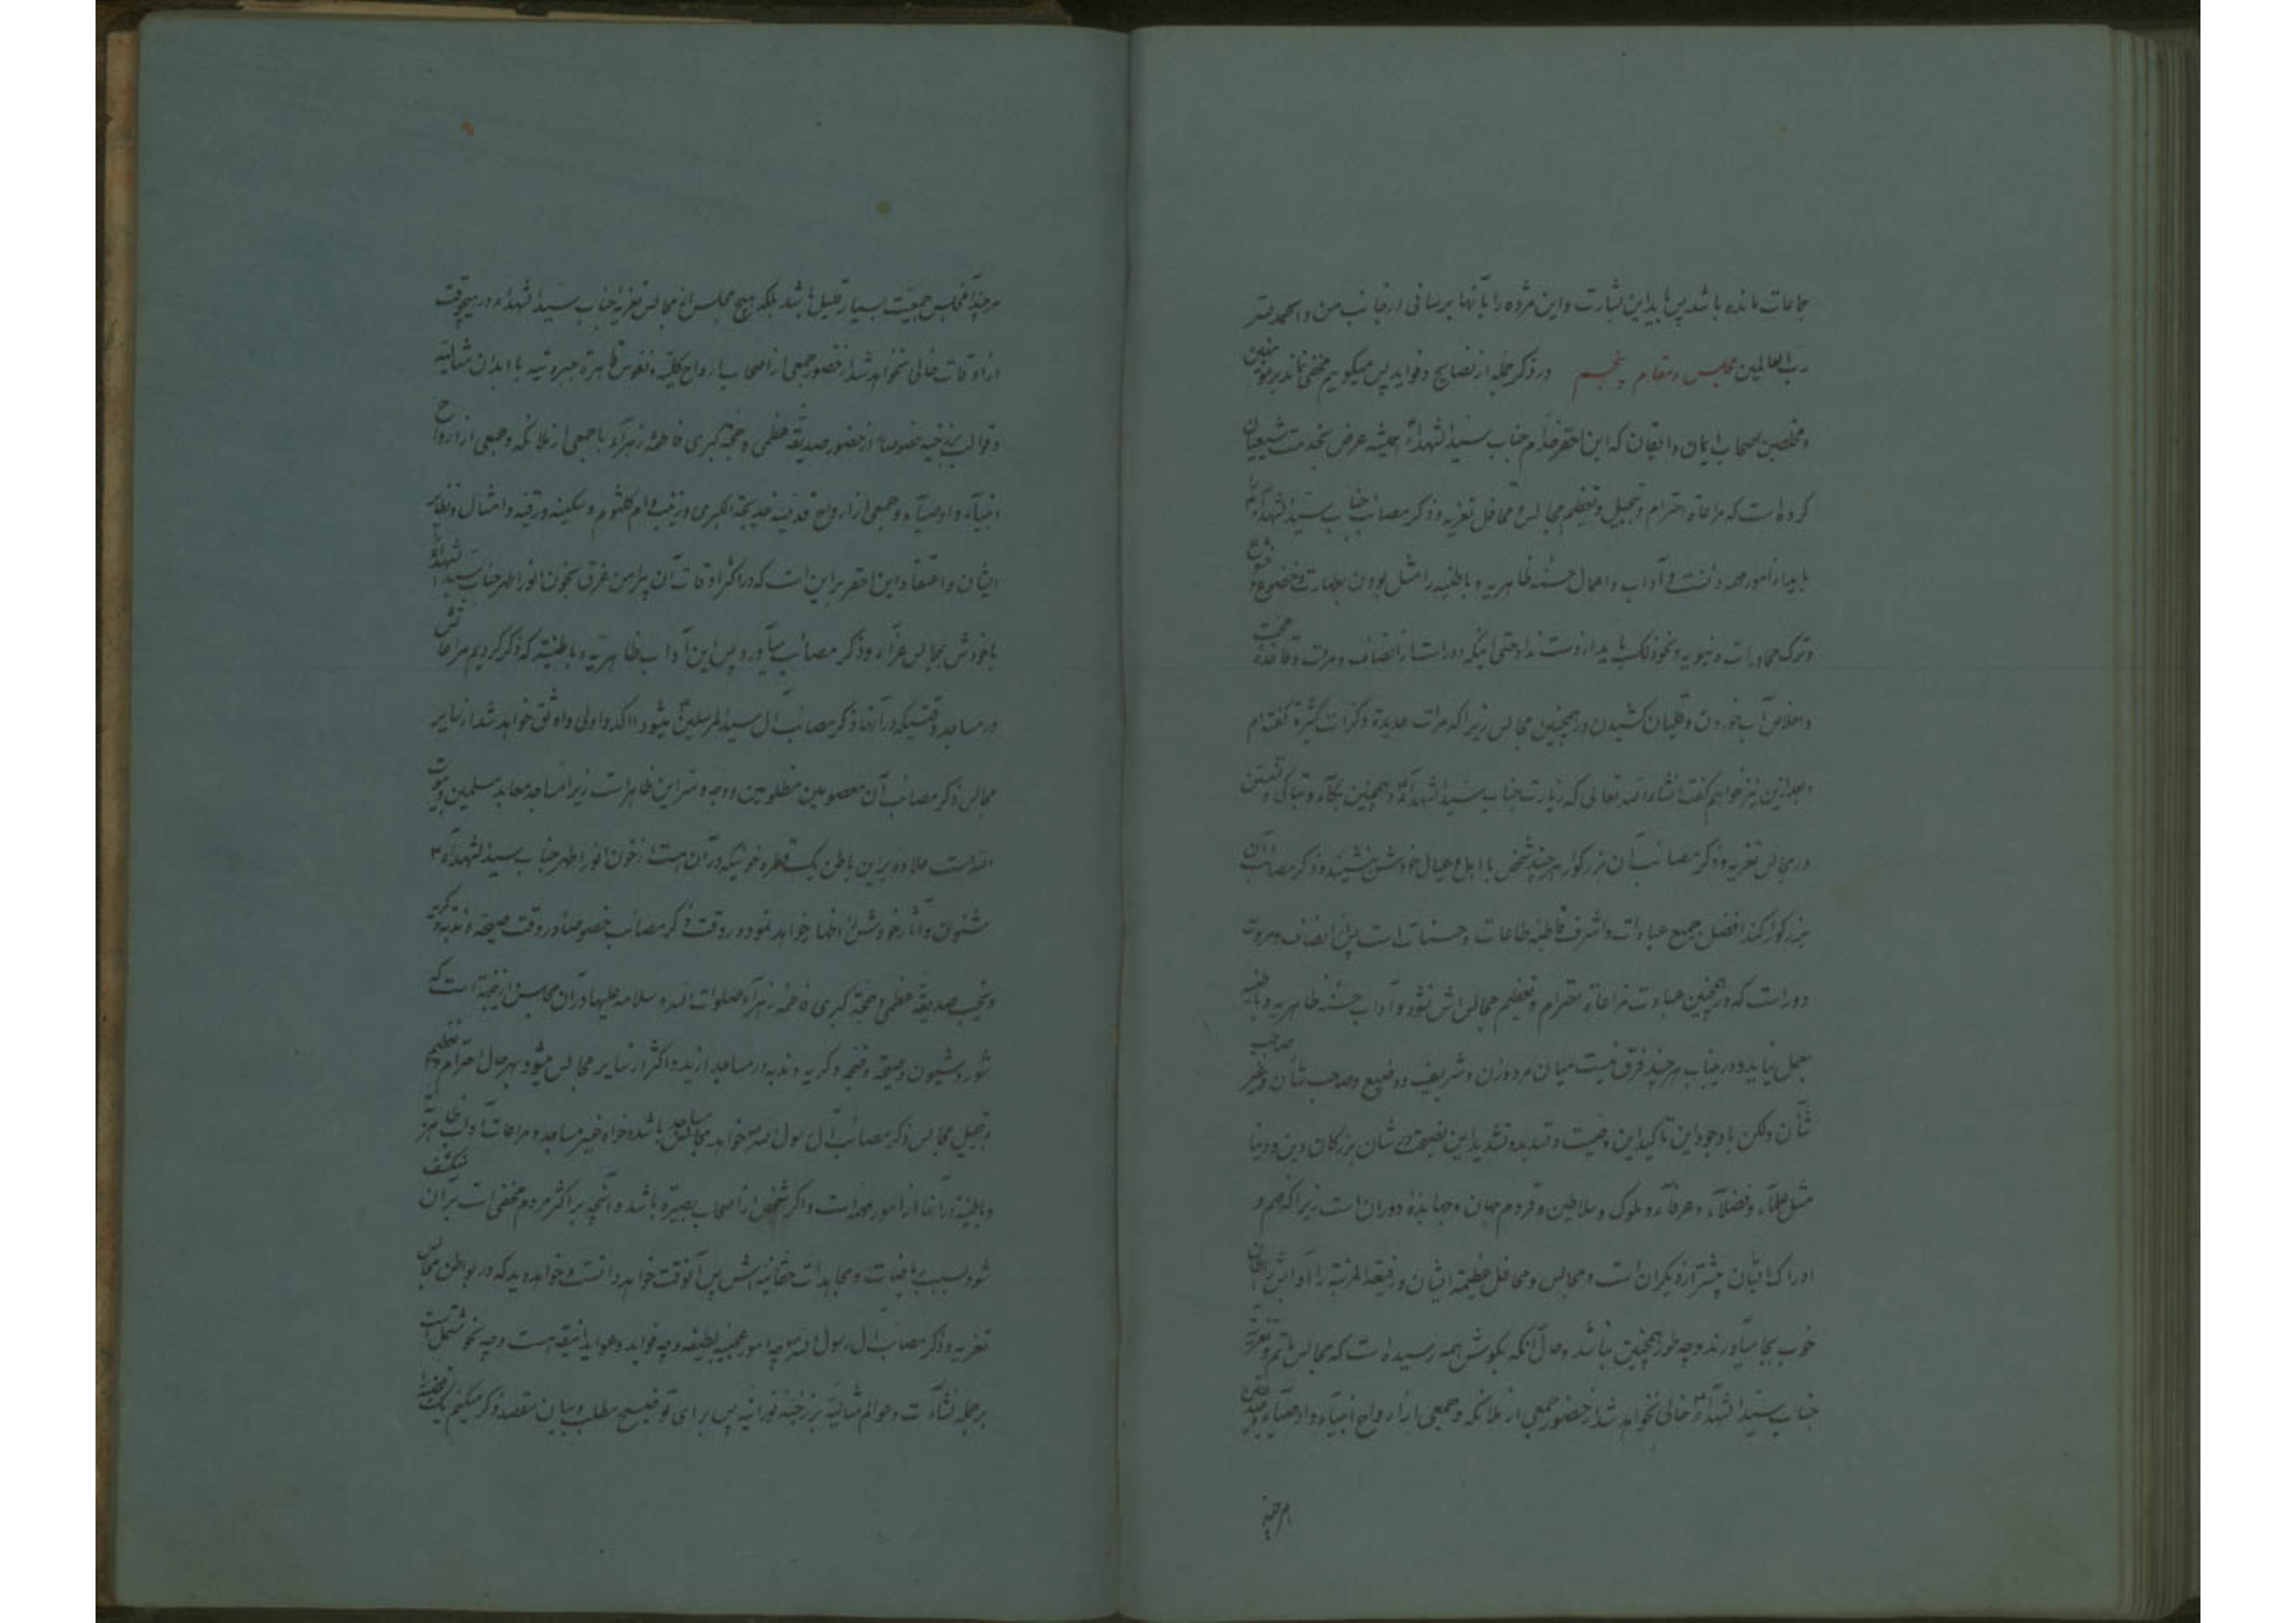 جماعات مانده باشد پس باید این بشارت و این مژده را بآنها برسانی از جانب من و الحمد لله
رب العالمین مجلس و مقام پنجم در ذکر جمله از نصایح و فواید پس میگویم مخفی نماند بر مؤمنین
و مخلصین اصحاب ایمان و ایقان که این احقر خدام جناب سید الشهداء همیشه عرض بخدمت شیعیان
کرده است که مراعاة احترام و تبجیل و تعظیم مجالس و محافل تعزیه و ذکر مصائب جناب سید الشهداء
باید از امور مهمه دانست و آداب و اعمال حسنه ظاهریه و باطنیه را مثل بودن بطهارت و خضوع و خشوع
و ترک محاورات دنیویه و نحو ذلک باید از دست نداد حتی اینکه دور است از انصاف و مروت و قاعده محبت
و اخلاص آب خوردن و قلیان کشیدن در همچنین مجالس زیرا که مرات عدیدة و کرات کثیرة گفته‌ام
و بعد ازین نیز خواهم گفت انشاء الله تعالی که زیارت جناب سید الشهداء و همچنین بکاء و تباکی و نشستن
در مجالس تعزیه و ذکر مصائب آن بزرگوار هر چند شخص با اهل و عیال خودش نشیند و ذکر مصائب آن
بزرگوار کند افضل جمیع عبادات و اشرف قاطبه طاعات و حسنات است پس از انصاف و مروت
دور است که در همچنین عبادت مراعاة احترام و تعظیم مجالس اش نشود و آداب حسنه ظاهریه و باطنیه
بعمل نیاید و در جناب هر چند فرق نیست میان مرد و زن و شریف و وضیع و صاحب شأن و غیر صاحب
شأن ولکن با وجود این تاکید این وصیت و تسدید و تشدید این نصیحت در شان بزرگان دین و دنیا
مثل علماء و فضلاء و عرفاء و ملوک و سلاطین و قروم جهان و جهابذه دوران است زیرا که فهم و
ادراک ایشان بیشتر از دیگران است و مجالس و محافل عظیمة الشأن و رفیعة المرتبة را آدابش ایشان
خوب بجا میآورند و چه طور همچنین نباشد و حال آنکه بگوش همه رسیده است که مجالس ماتم و تعزیه
جناب سید الشهداء خالی نخواهد شد از حضور جمعی از ملائکه و جمعی از ارواح انبیاء و اوصیاء و
هر چند
هر چند آن مجلس جمعیت بسیار قلیل باشد بلکه هیچ مجلس از مجالس تعزیه جناب سید الشهداء در هیچ وقت
از اوقات خالی نخواهد شد از حضور جمعی از اصحاب ارواح کلیه و نفوس قاهرة جبروتیه با ابدان مثالیه
و قوالب برزخیه خصوصا از حضور صدیقه عظمی و حجة کبری فاطمه زهراء با جمعی از ملائکه و جمعی از ارواح
انبیاء و اوصیاء و جمعی از ارواح قدسیه خدیجة الکبری و زینب و ام کلثوم و سکینه و رقیه و امثال و نظایر
ایشان و اعتقاد این احقر بر این است که در اکثر اوقات آن پیراهن غرق بخون انور اطهر جناب سید الشهداء
با خودش بمجالس عزاء و ذکر مصائب میآورد پس این آداب ظاهریه و باطنیه که ذکر کردیم مراعاتش
در مساجد وقتیکه در آنها ذکر مصائب آل سید المرسلین میشود آکد و اولی و اوثق خواهد شد از سایر
مجالس ذکر مصائب آن معصومین مظلومین و وجه و سر این ظاهر است زیرا مساجد معابد مسلمین و بیوت
الله است علاوه بر این باطن یک قطره خونیکه در آن هست از خون انور اطهر جناب سید الشهداء
شئون و آثار خودش را اظهار خواهد نمود در وقت ذکر مصائب خصوصا در وقت صیحه و ندبه و گریه
و نحیب صدیقه عظمی و حجة کبری فاطمه زهراء صلوات الله و سلامه علیها در آن مجلس و از این جهة است که
شور و شیون و صیحة و ضجه و گریه و ندبه در مساجد ازید و اکثر از سایر مجالس میشود بهر حال احترام و تعظیم
و تبجیل مجالس ذکر مصائب آل رسول الله خواه مجالس مساجد باشد و خواه غیر مساجد و مراعات آداب ظاهریه
و باطنیة در آنها از امور مهمه است و اگر شخص از اصحاب بصیرة باشد و آنچه بر اکثر مردم مخفی است بر آن منکشف
شود بسبب ریاضات و مجاهدات حقانیه اش پس آنوقت خواهد دانست و خواهد دید که در بواطن مجالس
تعزیه و ذکر مصائب آل رسول الله چه امور عجیبه لطیفه و چه فواید و عواید انیقه هست و چه نحو مشتمل است
بر جمله نشآت و عوالم مثالیه برزخیه نورانیه پس برای توضیح مطلب و بیان مقصد ذکر میکنم یک قضیه